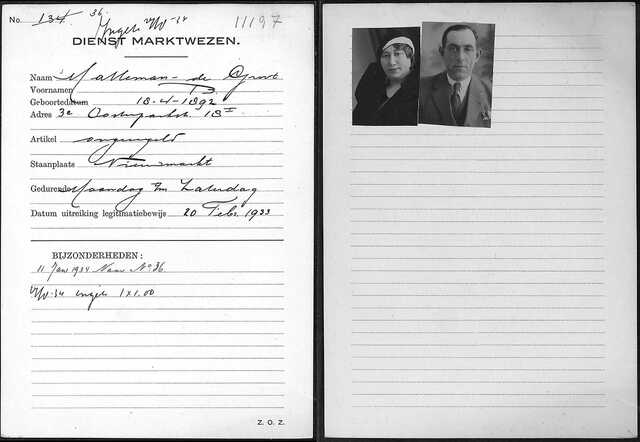 No. 134. 36. 11197
DIENST MARKTWEZEN.
Naam Matteman - de Groot
Voornamen
Geboortedatum 18-4-1892
Adres 3e Oosterparkstr. 18 I
Artikel ongeregeld
Staanplaats Nieuwmarkt
Gedurende Maandag t/m Zaterdag
Datum uitreiking legitimatiebewijs 20 Febr. 1933
BIJZONDERHEDEN:
11 Jan 1934 Naar No. 36
1 x 1.00
Z. O. Z.